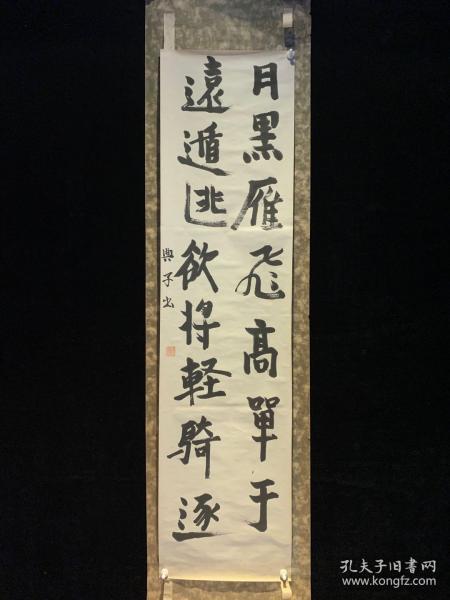 月黒雁飛高單于
遠遁逃欲将軽騎逐
典子出
孔夫子旧书网
www.kongfz.com